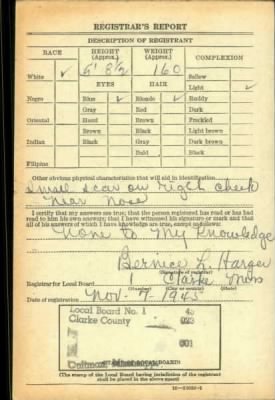 REGISTRAR'S REPORT
DESCRIPTION OF REGISTRANT
RACE HEIGHT (Approx.) WEIGHT (Approx.) COMPLEXION
White ✓ 5' 8½ 160 Sallow
EYES HAIR Light ✓
Negro Blue ✓ Blonde ✓ Ruddy
Gray Red Dark
Oriental Hazel Brown Freckled
Brown Black Light brown
Indian Black Gray Dark brown
Bald Black
Filipino
Other obvious physical characteristics that will aid in identification
Small scar on right cheek
near nose
I certify that my answers are true; that the person registered has read or has had
read to him his own answers; that I have witnessed his signature or mark and that
all of his answers of which I have knowledge are true, except as follows:
None to My Knowledge
Bernice L. Harger
(Signature of registrar)
Registrar for Local Board Clarke Miss
(Number) (City or county) (State)
Date of registration Nov. 7 1945
Local Board No. 1 45
Clarke County 023
001
Quitman, Mississippi
(STAMP OF LOCAL BOARD)
(The stamp of the Local Board having jurisdiction of the registrant
shall be placed in the above space)